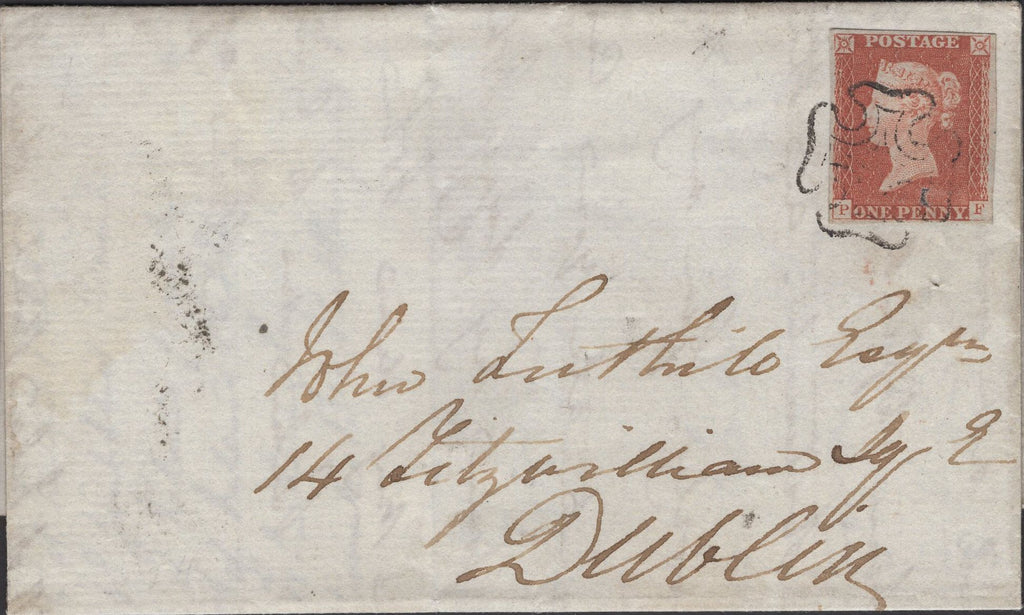 POSTAGE
P ONE PENNY F
John Tuthill Esqre
14 Fitzwilliam Sq E
Dublin